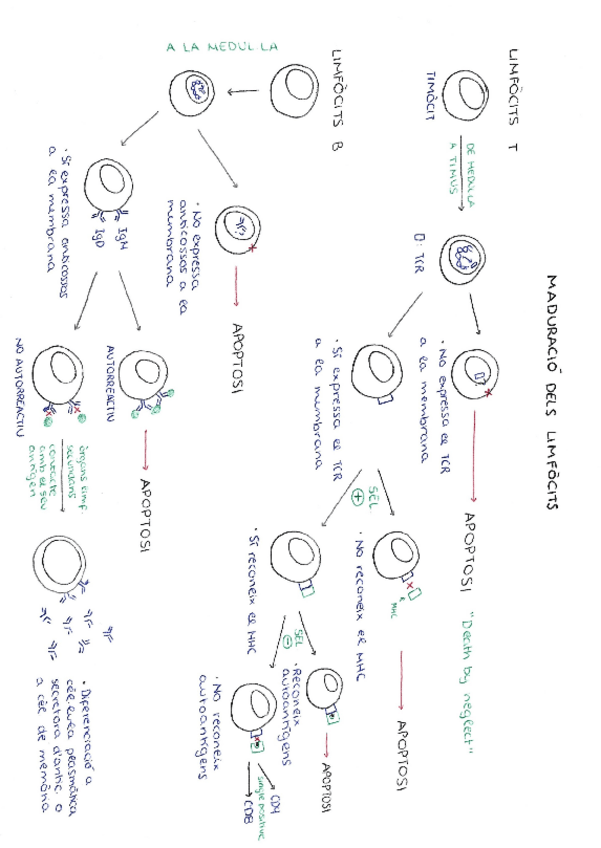 MADURACIÓ DELS LIMFÒCITS
LIMFÒCITS T
TIMÒCIT
DE MEDUL·LA
A TIMUS
▯: TCR
· No expressa el TCR
a la membrana
APOPTOSI
"Death by neglect"
· Sí expressa el TCR
a la membrana
SEL
+
MHC
· No reconeix el MHC
APOPTOSI
· Sí reconeix el MHC
SEL
-
· Reconeix
autoantígens
APOPTOSI
· No reconeix
autoantígens
CD4
single positive
CD8
LIMFÒCITS B
A LA MEDUL·LA
· No expressa
anticossos a la
membrana
APOPTOSI
· Sí expressa anticossos
a la membrana
IgM
IgD
AUTORREACTIU
APOPTOSI
NO AUTORREACTIU
òrgans limf.
secundaris
contacte
amb el seu
antigen
· Diferenciació a
cèl·lula plasmàtica
secretora d'antic. o
a cèl de memòria